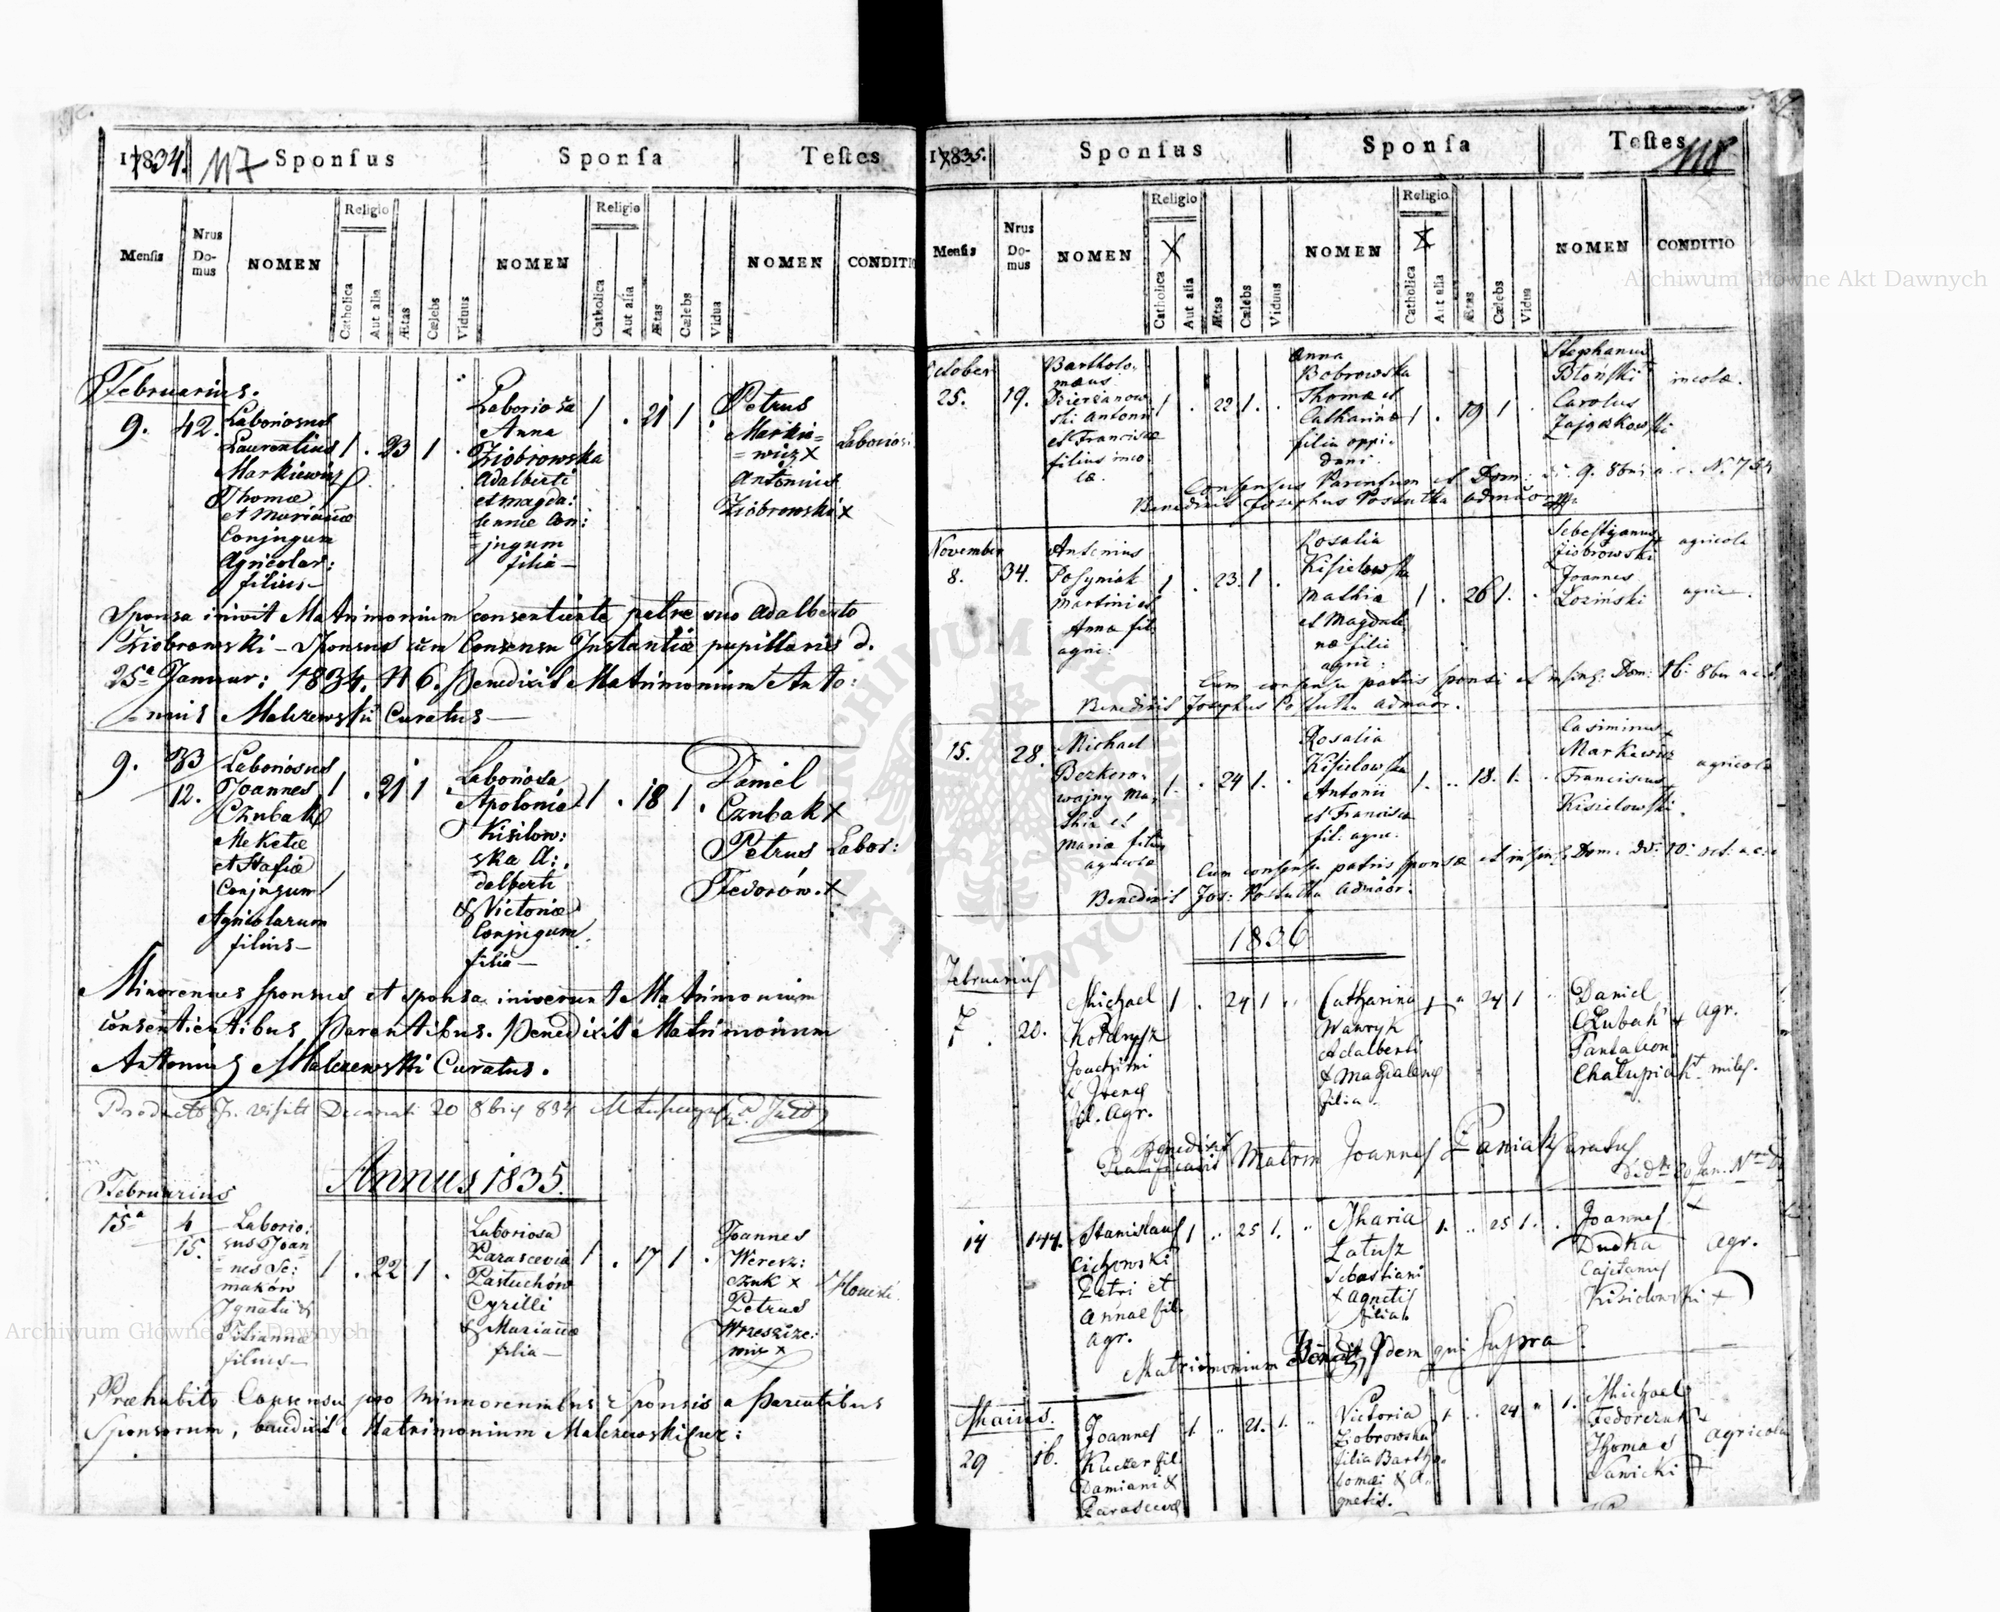 1834. 117 Sponsus Sponsa Testes
Mensis Nrus Domus NOMEN Religio Catholica Aut alia Ætas Cælebs Viduus NOMEN Religio Catholica Aut alia Ætas Cælebs Vidua NOMEN
Februarius.
9. 42. Laboriosus
Laurentius
Markiewicz
Thomæ
et Mariannæ
Conjugum
Agricolar:
filius
1 . 23 1 .
Laboriosa
Anna
Ziobrowska
Adalberti
et Magda:
lennæ Con:
=jugum
filia
1 . 21 1 .
Petrus
Markie=
=wicz X
Antonius
Ziobrowski x
Sponsa inivit Matrimonium consentiente patre suo Adalberto
Ziobrowski - Sponsus cum Consensu Instantiæ pupillaris d.
25ª Januar: 1834. N 6. Benedixit Matrimonium Anto:
=nius Malczewski Curatus
9. 83
12.
Laboriosus
Joannes
Czubak
Meketæ
et Stafiæ
Conjugum
Agricolarum
filius
1 . 21 1
Laboriosa
Apolonia
Kisilow:
ska A:
dalberti
& Victoriæ
Conjugum
filia
1 . 18 1 .
Daniel
Czubak x
Petrus Labor:
Fedorów. x
Minorennes sponsus et sponsa iniverunt Matrimonium
consentientibus Parentibus. Benedixit Matrimonium
Antonius Malczewski Curatus.
Annus 1835.
Februarius
15ª 4
15.
Laborio:
sus Joan
=nes Se:
maków
Ignatii &
Tilianna
filius
1 . 22 1 .
Laboriosa
Parascevia
Pastuchów
Cyrilli
& Mariannæ
filia
1 . 17 1 .
Joannes
Weresz:
czuk x
Petrus
Wreszcze:
x
Honesti.
Præhabito Consensu pro minnorennibus Sponsis a Parentibus
Sponsorum, benedixit Matrimonium Malczewski Cur:
1835. Sponsus Sponsa Testes 118
Mensis Nrus Domus NOMEN Religio Catholica Aut alia Ætas Cælebs Viduus NOMEN Religio Catholica Aut alia Ætas Cælebs Vidua NOMEN CONDITIO
October
25. 19.
Bartholo
mæus
Dzierżanow
ski Antonii
et Franciscæ
filius inco
læ.
1 . 22 1 .
Anna
Bobrowska
Thomæ et
Catharinæ
filia oppi
dani
1 . 19 1 .
Stephanus
Błoński
Carolus
Zajączkowski
incolæ.
Consensus Parentum et Dom:
Benedixit Josephus Postutka
November
8. 34.
Antonius
Posyniak
Martini et
Annæ fil
agric:
1 . 23. 1 .
Rosalia
Kisielowska
Mathia
et Magdale
næ filia
agric:
1 . 26 1 .
Sebestyanus
Ziobrowski
Joannes
Łoziński
agricolæ
Cum consensu patris sponsi et
Benedixit Josephus Postutka
15. 28.
Michael
Bezkoro
wajny Ma
thiæ et
Mariæ filius
agricolæ
1 . 24 1 .
Rosalia
Kisielowska
Antonii
et Franciscæ
fil: agric.
1 . 18. 1 .
Casimirus
Markiewicz
Franciscus
Kisielowski.
agricolæ
Cum consensu patris sponsæ et
Benedixit Jos: Postutka
1836
Februarius
7 20.
Michael
Joachimi
& Irenes
fil. Agr.
1 . 24 1
Catharina
Wawryk
Adalberti
& Magdalenes
filia
24 1
Daniel
Czubak x
Pantaleon
Chałupiak
Agr.
miles.
Benedixit Matrim Joannes Paniak Curatus
14 144.
Stanislaus
Cichowski
Petri et
Annae fil.
Agr.
1 25 1.
Maria
Latusz
Sebastiani
& Agnetis
filia
1. 25 1.
Joannes
Dudka
Cajetanus
Kisielowski x
Agr.
Matrimonium Bened. Idem qui Supra
Maius.
29 16.
Joannes
Kucter fil.
Damiani &
Parascevæ
1. 21. 1.
Victoria
Ziobrowska
filia Bartho
lomæi & A
gnetis.
1. 24 1.
Michael
Fedorczuk
Thomas
Sanicki
agricolæ
Archiwum Główne Akt Dawnych
Archiwum Główne Akt Dawnych
ARCHIWUM GŁÓWNE AKT DAWNYCH